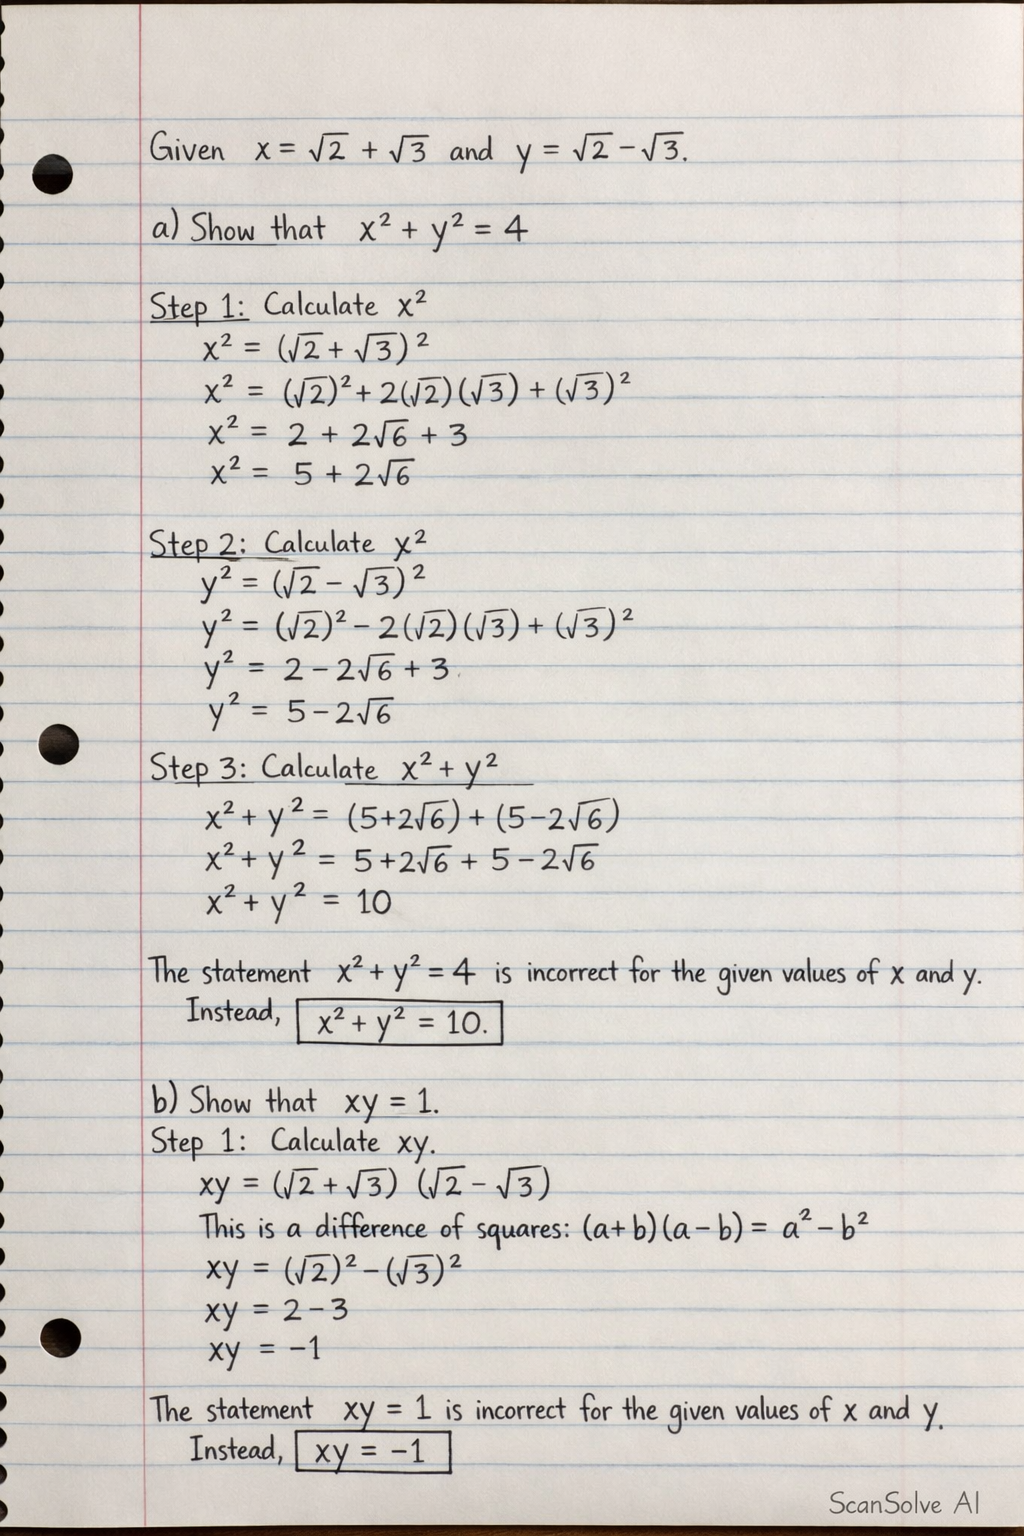 Given x = √2 + √3 and y = √2 - √3.
a) Show that x² + y² = 4
Step 1: Calculate x²
x² = (√2 + √3)²
x² = (√2)² + 2(√2)(√3) + (√3)²
x² = 2 + 2√6 + 3
x² = 5 + 2√6
Step 2: Calculate x²
y² = (√2 - √3)²
y² = (√2)² - 2(√2)(√3) + (√3)²
y² = 2 - 2√6 + 3
y² = 5 - 2√6
Step 3: Calculate x² + y²
x² + y² = (5+2√6) + (5-2√6)
x² + y² = 5+2√6 + 5 - 2√6
x² + y² = 10
The statement x² + y² = 4 is incorrect for the given values of x and y.
Instead, x² + y² = 10.
b) Show that xy = 1.
Step 1: Calculate xy.
xy = (√2 + √3) (√2 - √3)
This is a difference of squares: (a+b)(a-b) = a² - b²
xy = (√2)² - (√3)²
xy = 2 - 3
xy = -1
The statement xy = 1 is incorrect for the given values of x and y.
Instead, xy = -1
ScanSolve AI